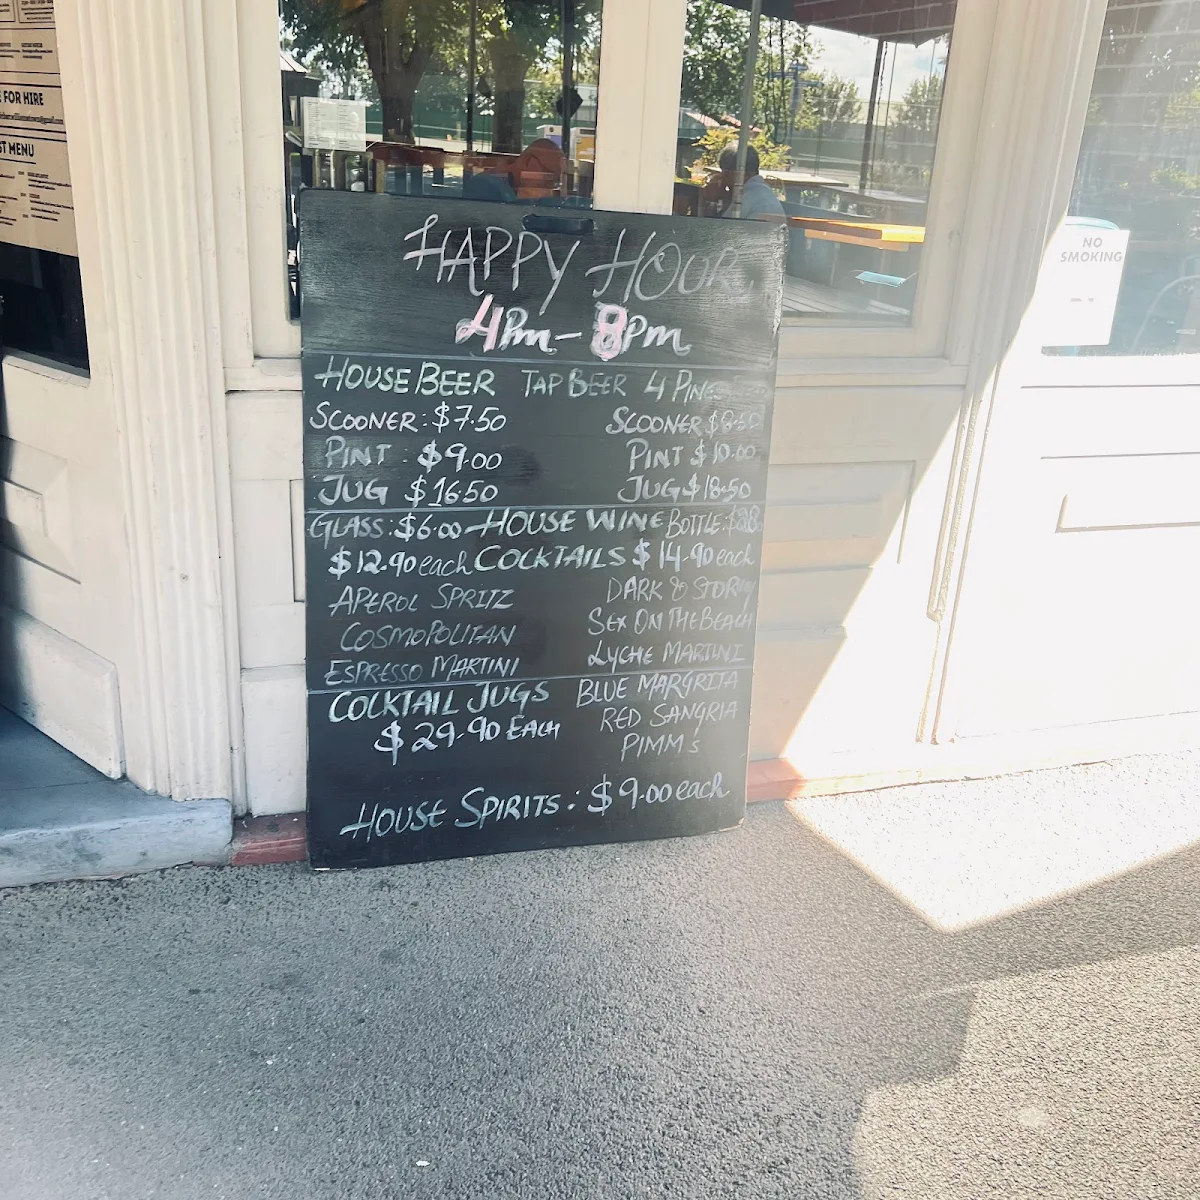 FOR HIRE
ST MENU
NO
SMOKING
HAPPY HOUR
4Pm - 8Pm
HOUSE BEER TAP BEER 4 PINES
SCOONER: $7.50 SCOONER $8.50
PINT : $9.00 PINT $10.00
JUG $16.50 JUG $18.50
GLASS: $6.00 HOUSE WINE BOTTLE: $28
$12.90 each COCKTAILS $14.90 each
APEROL SPRITZ DARK & STORMY
COSMOPOLITAN SEX ON THE BEACH
ESPRESSO MARTINI LYCHE MARTINI
COCKTAIL JUGS BLUE MARGRITA
$29.90 EACH RED SANGRIA
PIMMs
HOUSE SPIRITS: $9.00 each